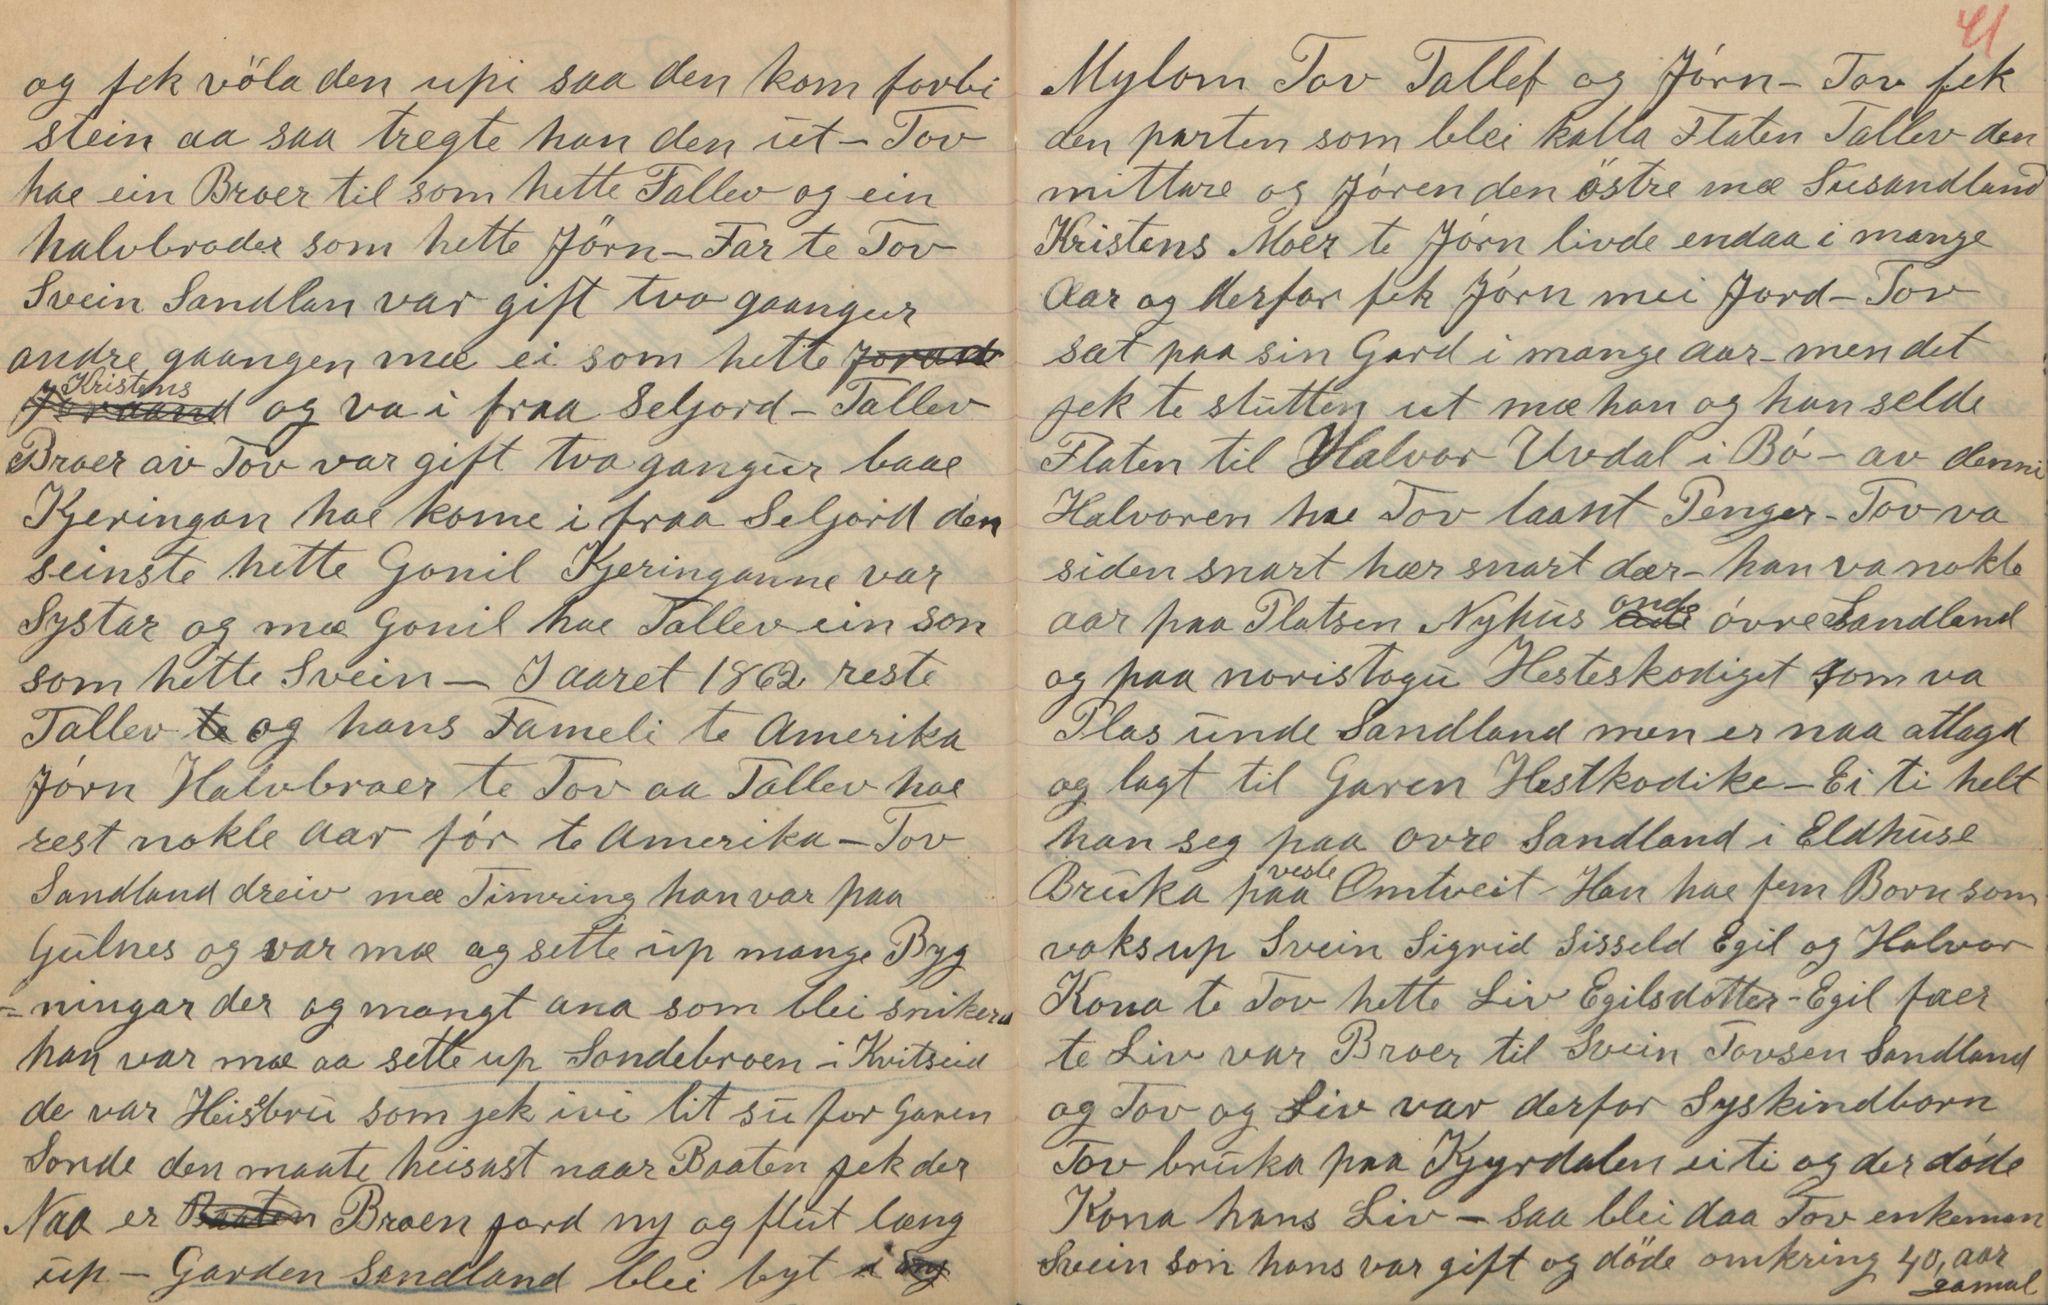 og fek völa den upi saa den kom forbi
stein aa saa tregte han den ut - Tov
hae ein Broer til som hette Tallev og ein
halvbroder som hette Jörn - Far te Tov
Svein Sandlan var gift tvo gaangur
andre gaangen mæ ei som hette Jorand
Kristens
Joraand og va i fraa Seljord - Tallev
Broer av Tov var gift tvo gangur baae
Kjeringan hae kome i fraa Seljord den
seinste hette Gonil Kjeringanne var
Systar og mæ Gonil hae Tallev ein son
som hette Svein - I aaret 1862 reste
Tallev te og hans Fameli te Amerika
Jórn Halvbroer te Tov aa Tallev hae
rest nokle Aar fór te Amerika - Tov
Sandland dreiv mæ Timring han var paa
Gulnes og var mæ og sette up mange Byg
=ningar der og mangt ana som blei snikera
han var mæ aa sette up Sondebroen i Kvitseid
de var Heisbru som jek ivi lit su for Garen
Sonde den maate heisast naar Baaten jek der
Naa er Baaten Broen jord ny og flut læng
up - Garden Sandland blei byt i
41
Mylom Tov Tallef og Jórn - Tov fek
den parten som blei kalla Flaten Tallev den
mittare og Jóren den östre mæ Susandland
Kristens Moer te Jórn livde endaa i mange
Aar og derfor fek Jórn mei Jord - Tov
sat paa sin Gard i mange aar - men det
jek te slutten ut mæ han og han selde
Flaten til Halvor Uvdal i Bó - av denni
Halvoren hae Tov laant Penger - Tov va
siden snart hær snart dær - han va nokle
aar paa Platsen Nyhus onde óvre Sandland
og paa noristogu Hesteskodiget som va
Plas unde Sandland men er naa atlagd
og lagt til Garen Hestkodike - Ei ti helt
han seg paa ovre Sandland i Eldhuse
Bruka paa vesle Omtveit - Han hae fem Born som
voks up Svein Sigrid Sisseld Egil og Halvor
Kona te Tov hette Liv Egilsdotter - Egil faer
te Liv var Broer til Svein Tovsen Sandland
og Tov og Liv var derfor Syskindborn
Tov bruka paa Kjyrdalen ei ti og der döde
Kona hans Liv - saa blei daa Tov enkeman
Svein son hans var gift og döde omkring 40, aar
gamal